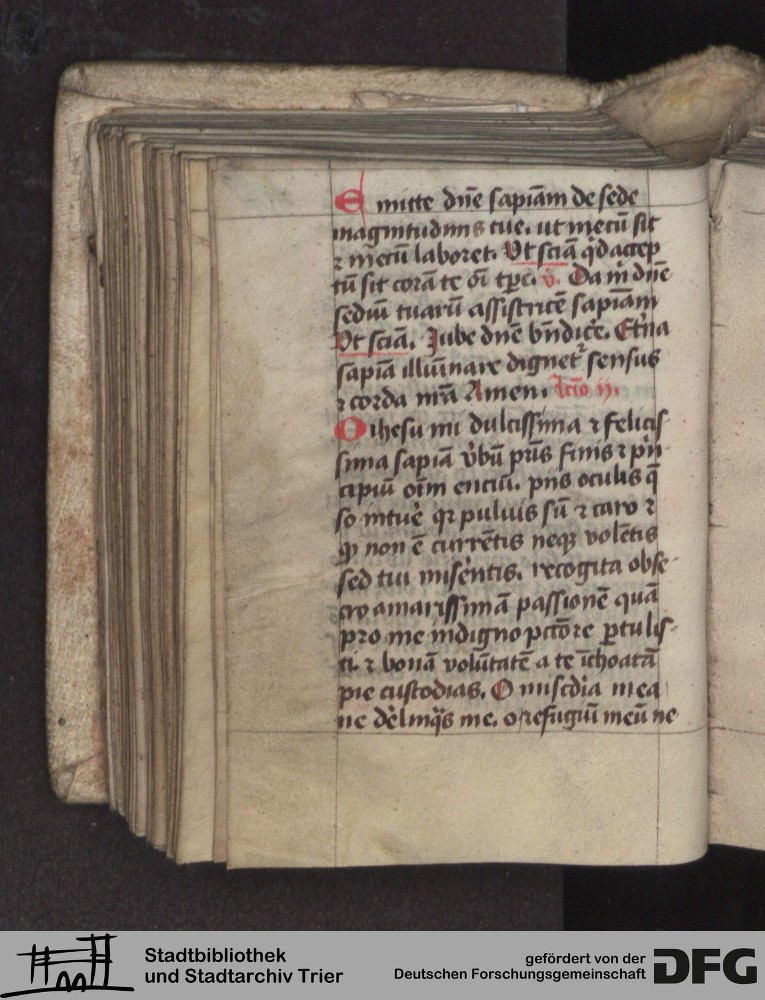 Emitte dn̄e sapiām de sede
magnitudinis tue. ut mecū sit
⁊ mecū laboret. Vt sciā qͥd accep
tū sit corā te oī tp̄e. v̄. Da m̄ dn̄e
sediū tuarū assistricē sapiām
Vt sciā. Jube dn̄e bn̄dice. Et̓na
sapiā illuīnare dignet᷑ sensus
⁊ corda nr̄a Amen. lc̄io ij.
O ihesu mi dulcissima ⁊ felicis
sima sapiā v̓bū pr̄is finis ⁊ pͥn
cipiū oīm enciū. pijs oculis q̄
so intue̓ qꝛ puluis sū ⁊ caro ⁊
ꝙ non ē currētis neqꝫ volētis
sed tui mise̓ntis. recogita obse
cro amarissimā passionē quā
pro me indigno pctōre ꝑtulis
ti. ⁊ bonā volūtatē a te īchoatā
pie custodias. O mīscdia mea
ne de̓linqͣs me. o refugiū meū ne
Stadtbibliothek
und Stadtarchiv Trier
gefördert von der
Deutschen Forschungsgemeinschaft
DFG